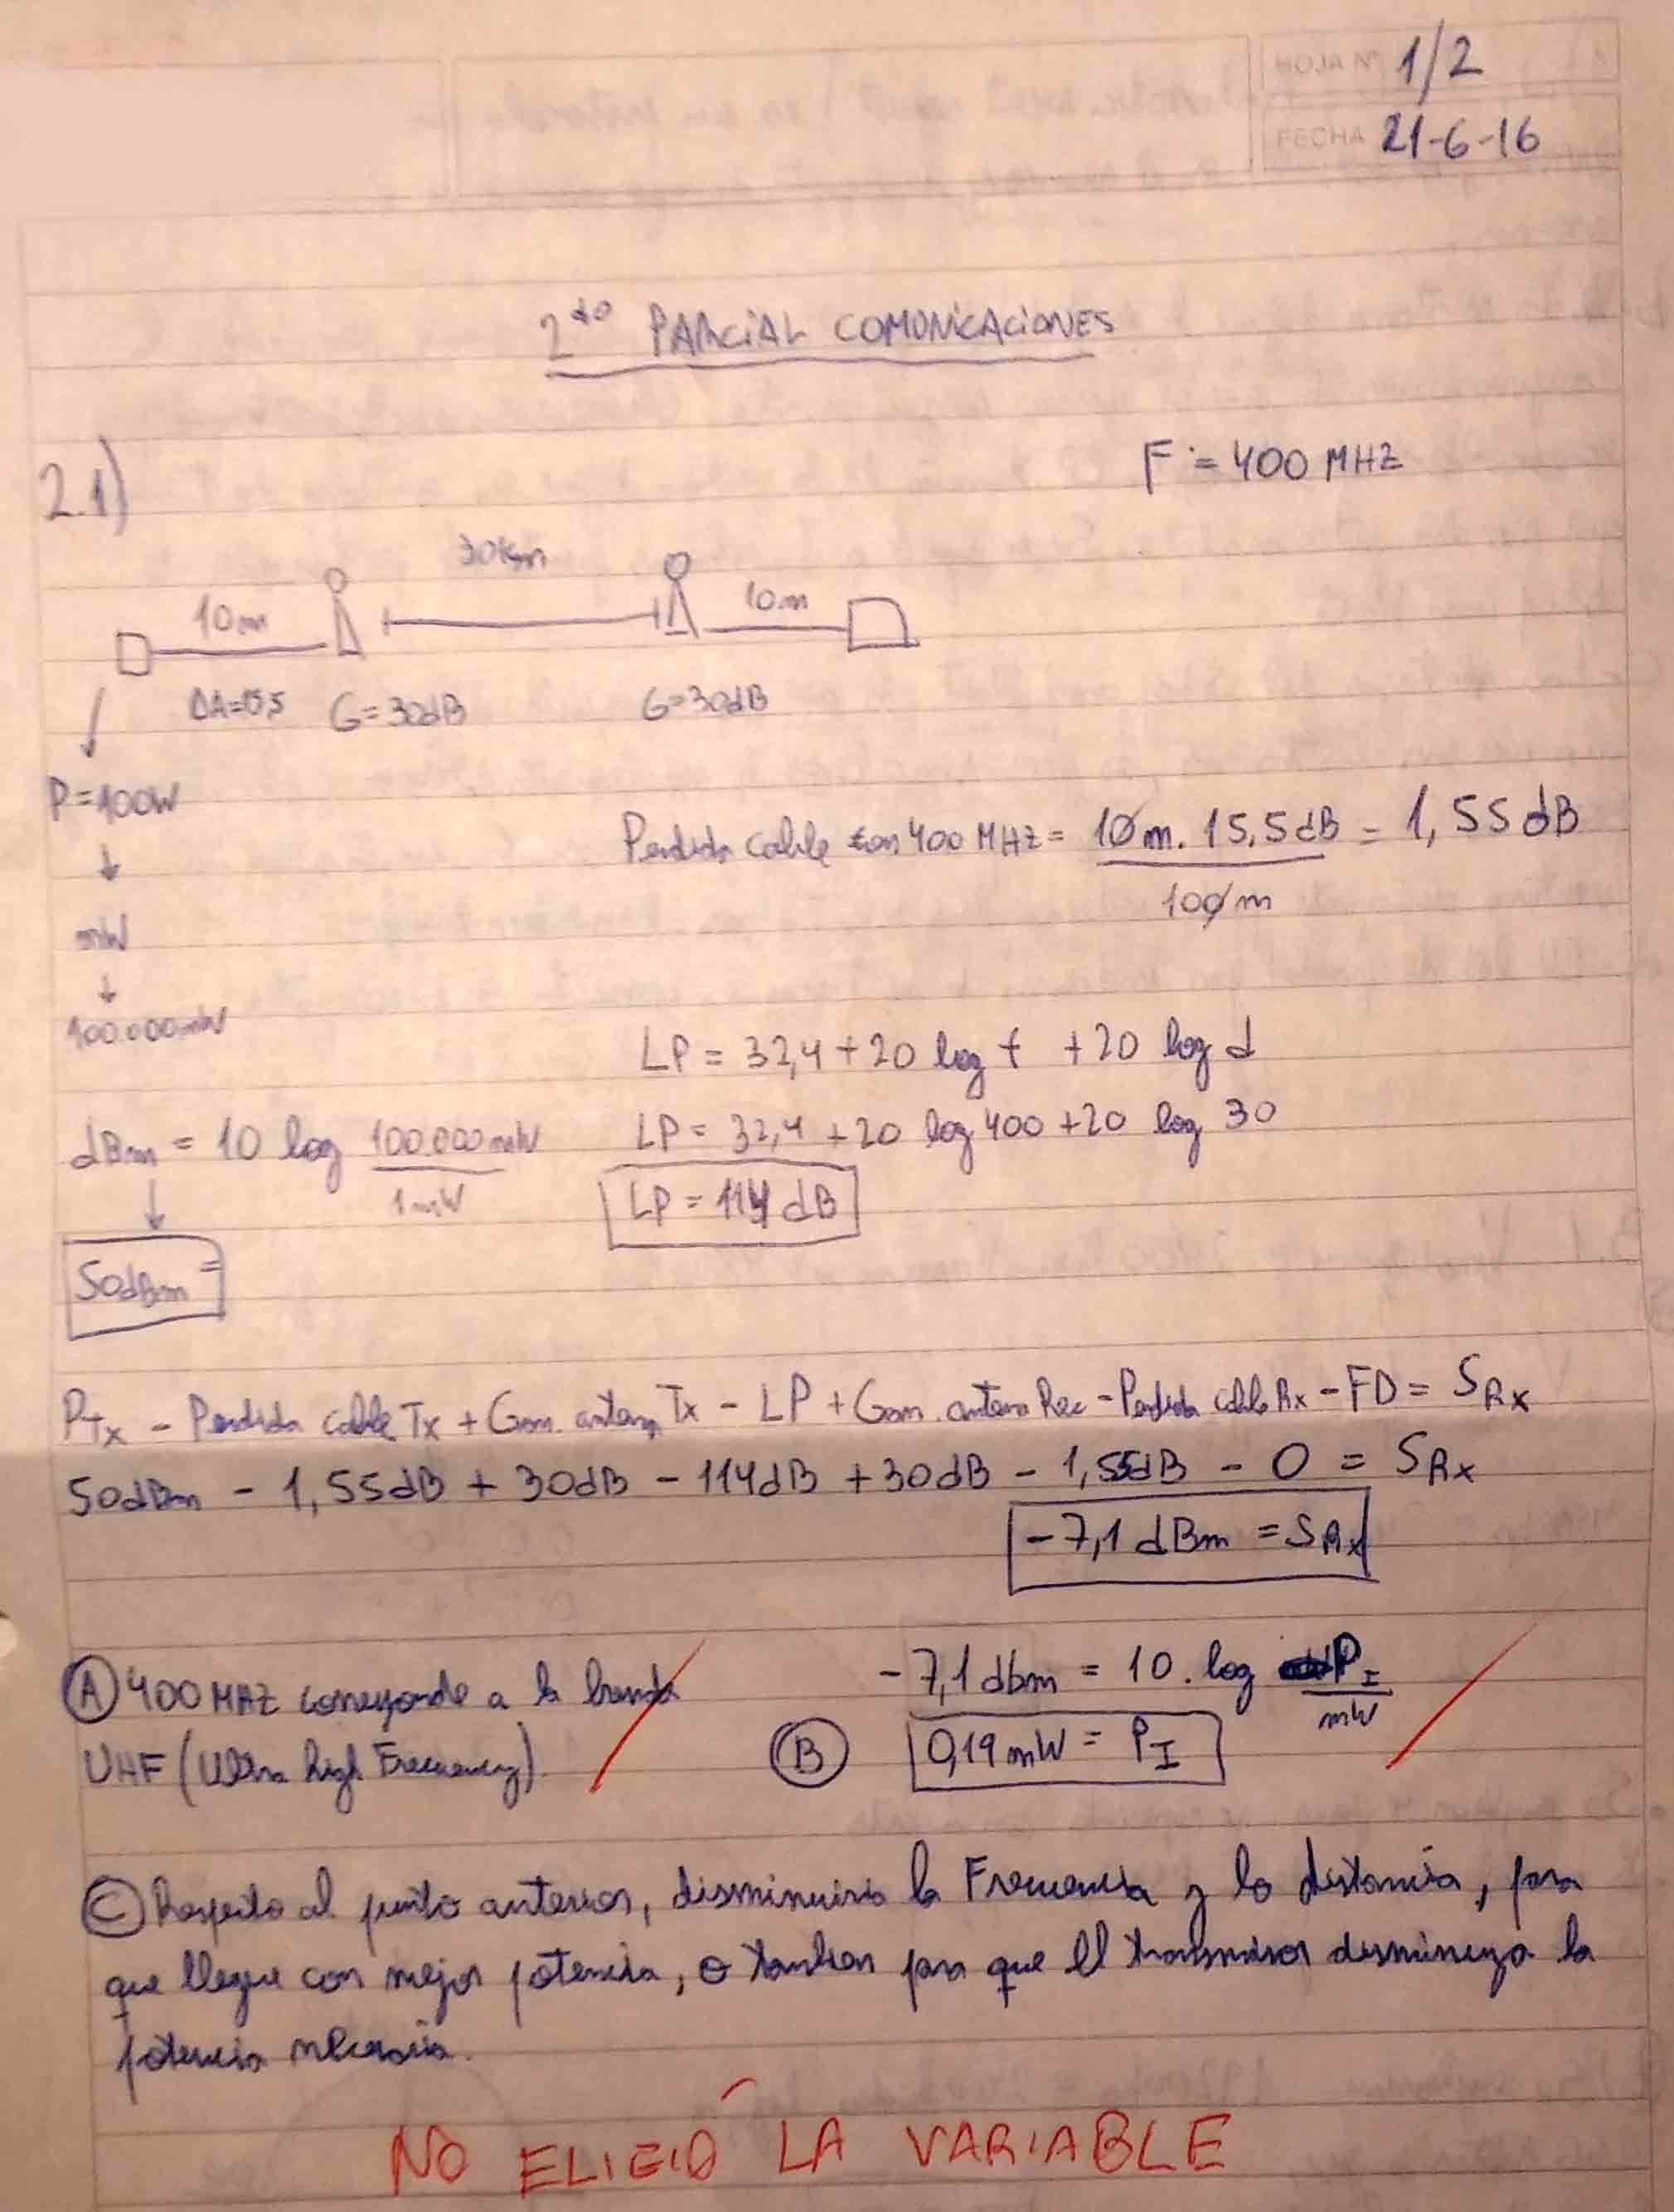 HOJA Nº 1/2
FECHA 21-6-16
2do PARCIAL COMUNICACIONES
2.1)
F = 400 MHZ
30Km
10m
10m
ΔA=15,5 G=30dB G=30dB
P=100W
Perdida cable con 400 MHz = 10m. 15,5dB = 1,55dB
100m
mW
100.000mW
LP = 32,4 + 20 log f + 20 log d
dBm = 10 log 100.000mW
1mW
LP = 32,4 + 20 log 400 + 20 log 30
LP = 114 dB
50dBm =
PTx - Perdida cable Tx + Gan. antena Tx - LP + Gan. antena Rec - Perdida cable Rx - FD = SRx
50dBm - 1,55dB + 30dB - 114dB + 30dB - 1,55dB - 0 = SRx
-7,1 dBm = SRx
A 400 MHZ corresponde a la banda
UHF (Ultra high Frecuency).
-7,1 dbm = 10. log PI
mW
B 0,19 mW = PI
C Respecto al punto anterior, disminuiria la Frecuencia y la distancia, para
que llegue con mejor potencia, o tambien para que el transmisor disminuya la
potencia necesaria.
NO ELIGIÓ LA VARIABLE